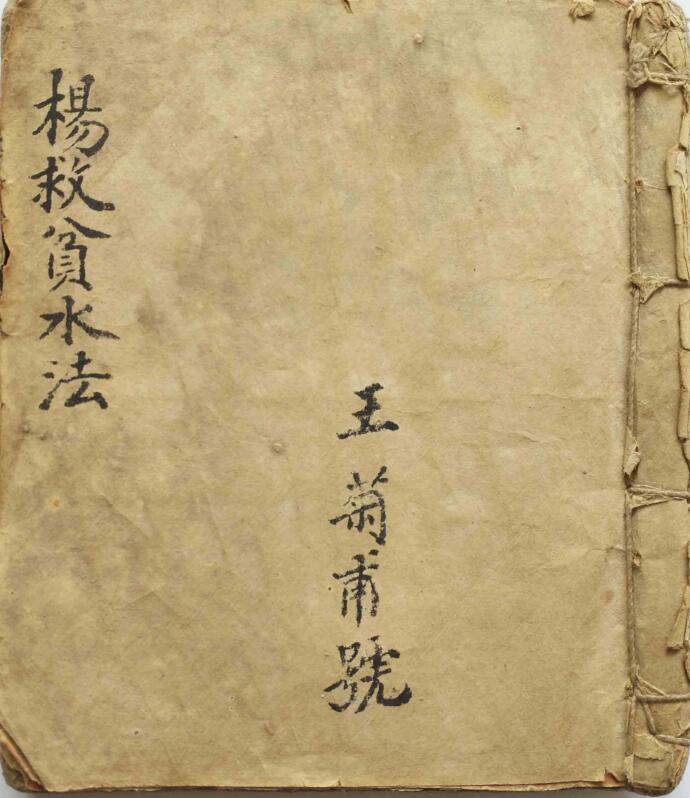 王菊甫號
楊救貧水法